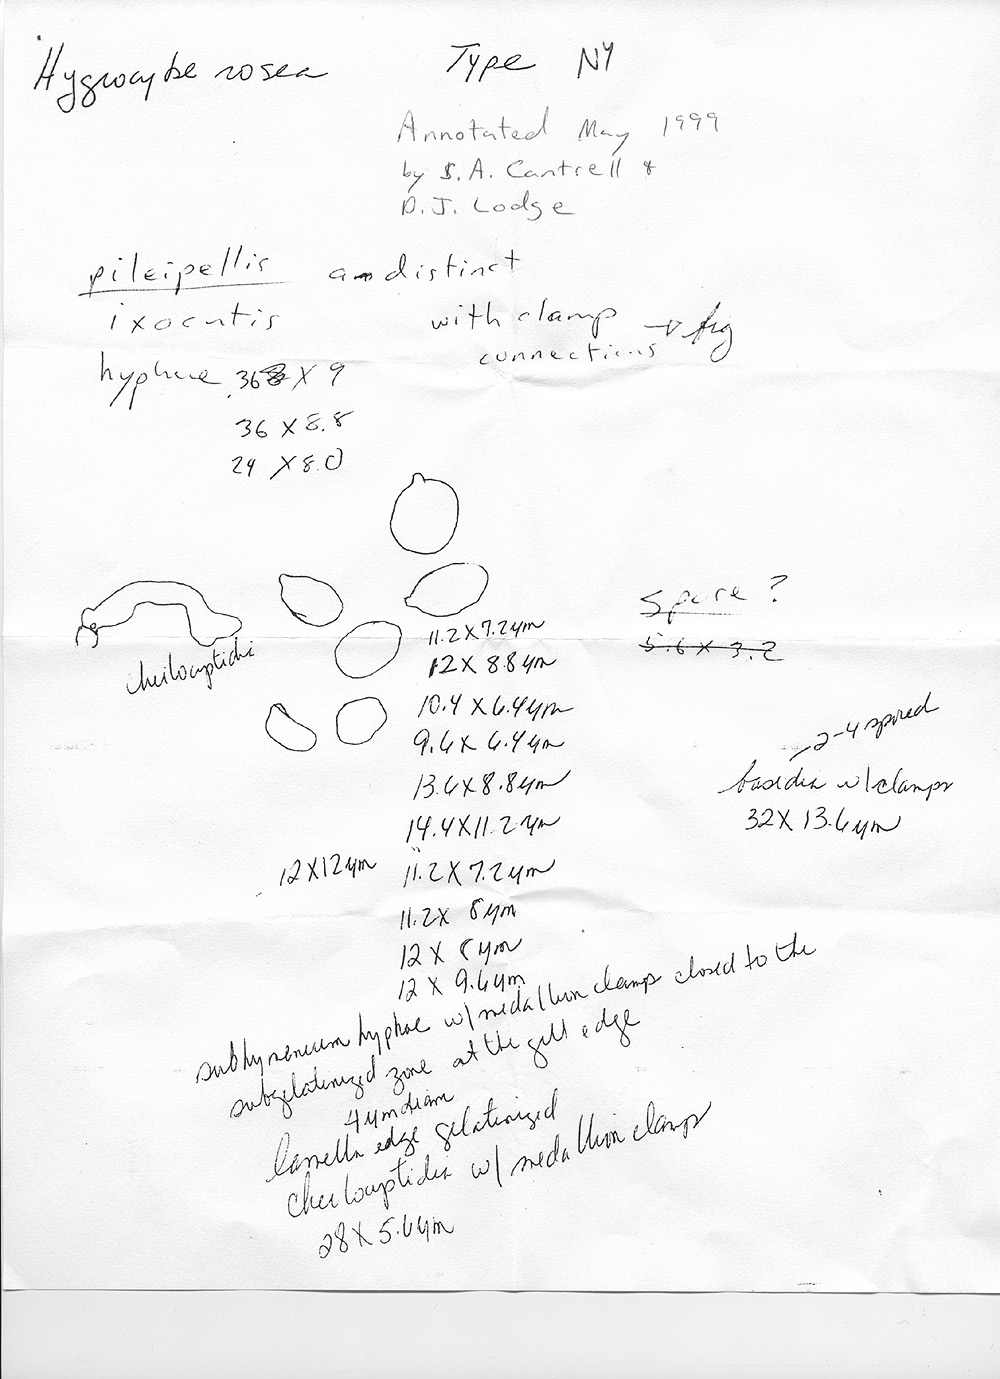 Hygrocybe rosea Type NY
Annotated May 1999
by S.A. Cantrell &
D.J. Lodge
pileipellis a distinct
ixocutis with clamp
connections → fig
hyphae 36 X 9
36 X 8.8
24 X 8.0
cheilocystidi
Spore ?
5.6 X 3.2
11.2 X 7.2 µm
12 X 8.8 µm
10.4 X 6.4 µm
9.6 X 6.4 µm
13.6 X 8.8 µm
14.4 X 11.2 µm
12 X 12 µm 11.2 X 7.2 µm
11.2 X 8 µm
12 X 8 µm
12 X 9.6 µm
2-4 spored
basidia w/clamps
32 X 13.6 µm
subhymenium hyphae w/ medallion clamps closed to the
subgelatinized zone at the gill edge
4 µm diam
lamella edge gelatinized
cheilocystidia w/ medallion clamps
28 X 5.6 µm